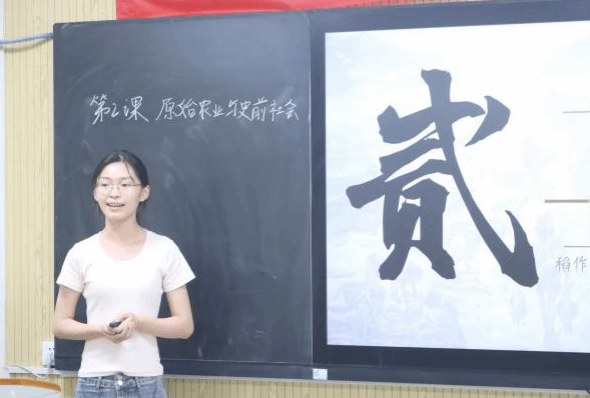 第2课 原始农业与史前社会
贰
稻作